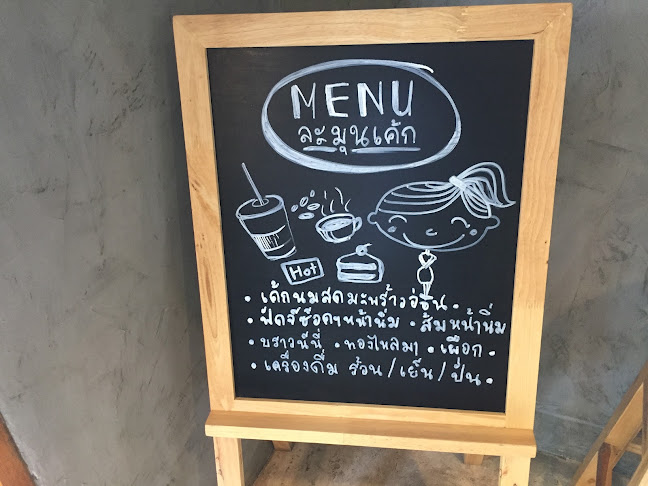 MENU
ละมุนเค้ก
Hot
• เค้กนมสดมะพร้าวอ่อน •
• ฟัดจ์ช็อคฯหน้านิ่ม • ส้มหน้านิ่ม
• บราวน์นี่ • ทองไหลมา • เผือก •
• เครื่องดื่ม ร้อน/เย็น/ปั่น •